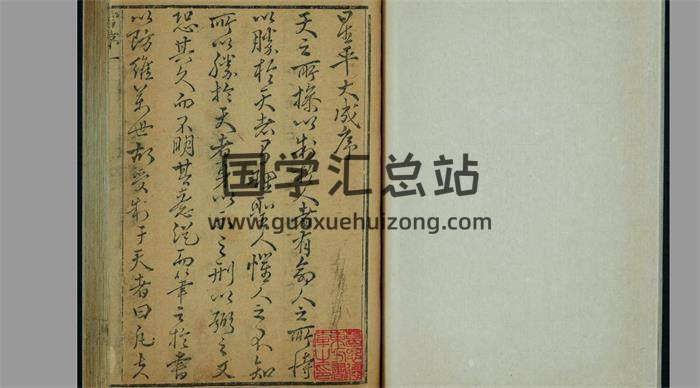 星平大成序
天之所操以制人者有命人之所恃
以勝於天者理聖人懼人之不知
所以勝於天者以之刑以弼之又
恐其久而不明其從而筆之於書
以防維萬世故受制于天者曰
国学汇总站
www.guoxuehuizong.com